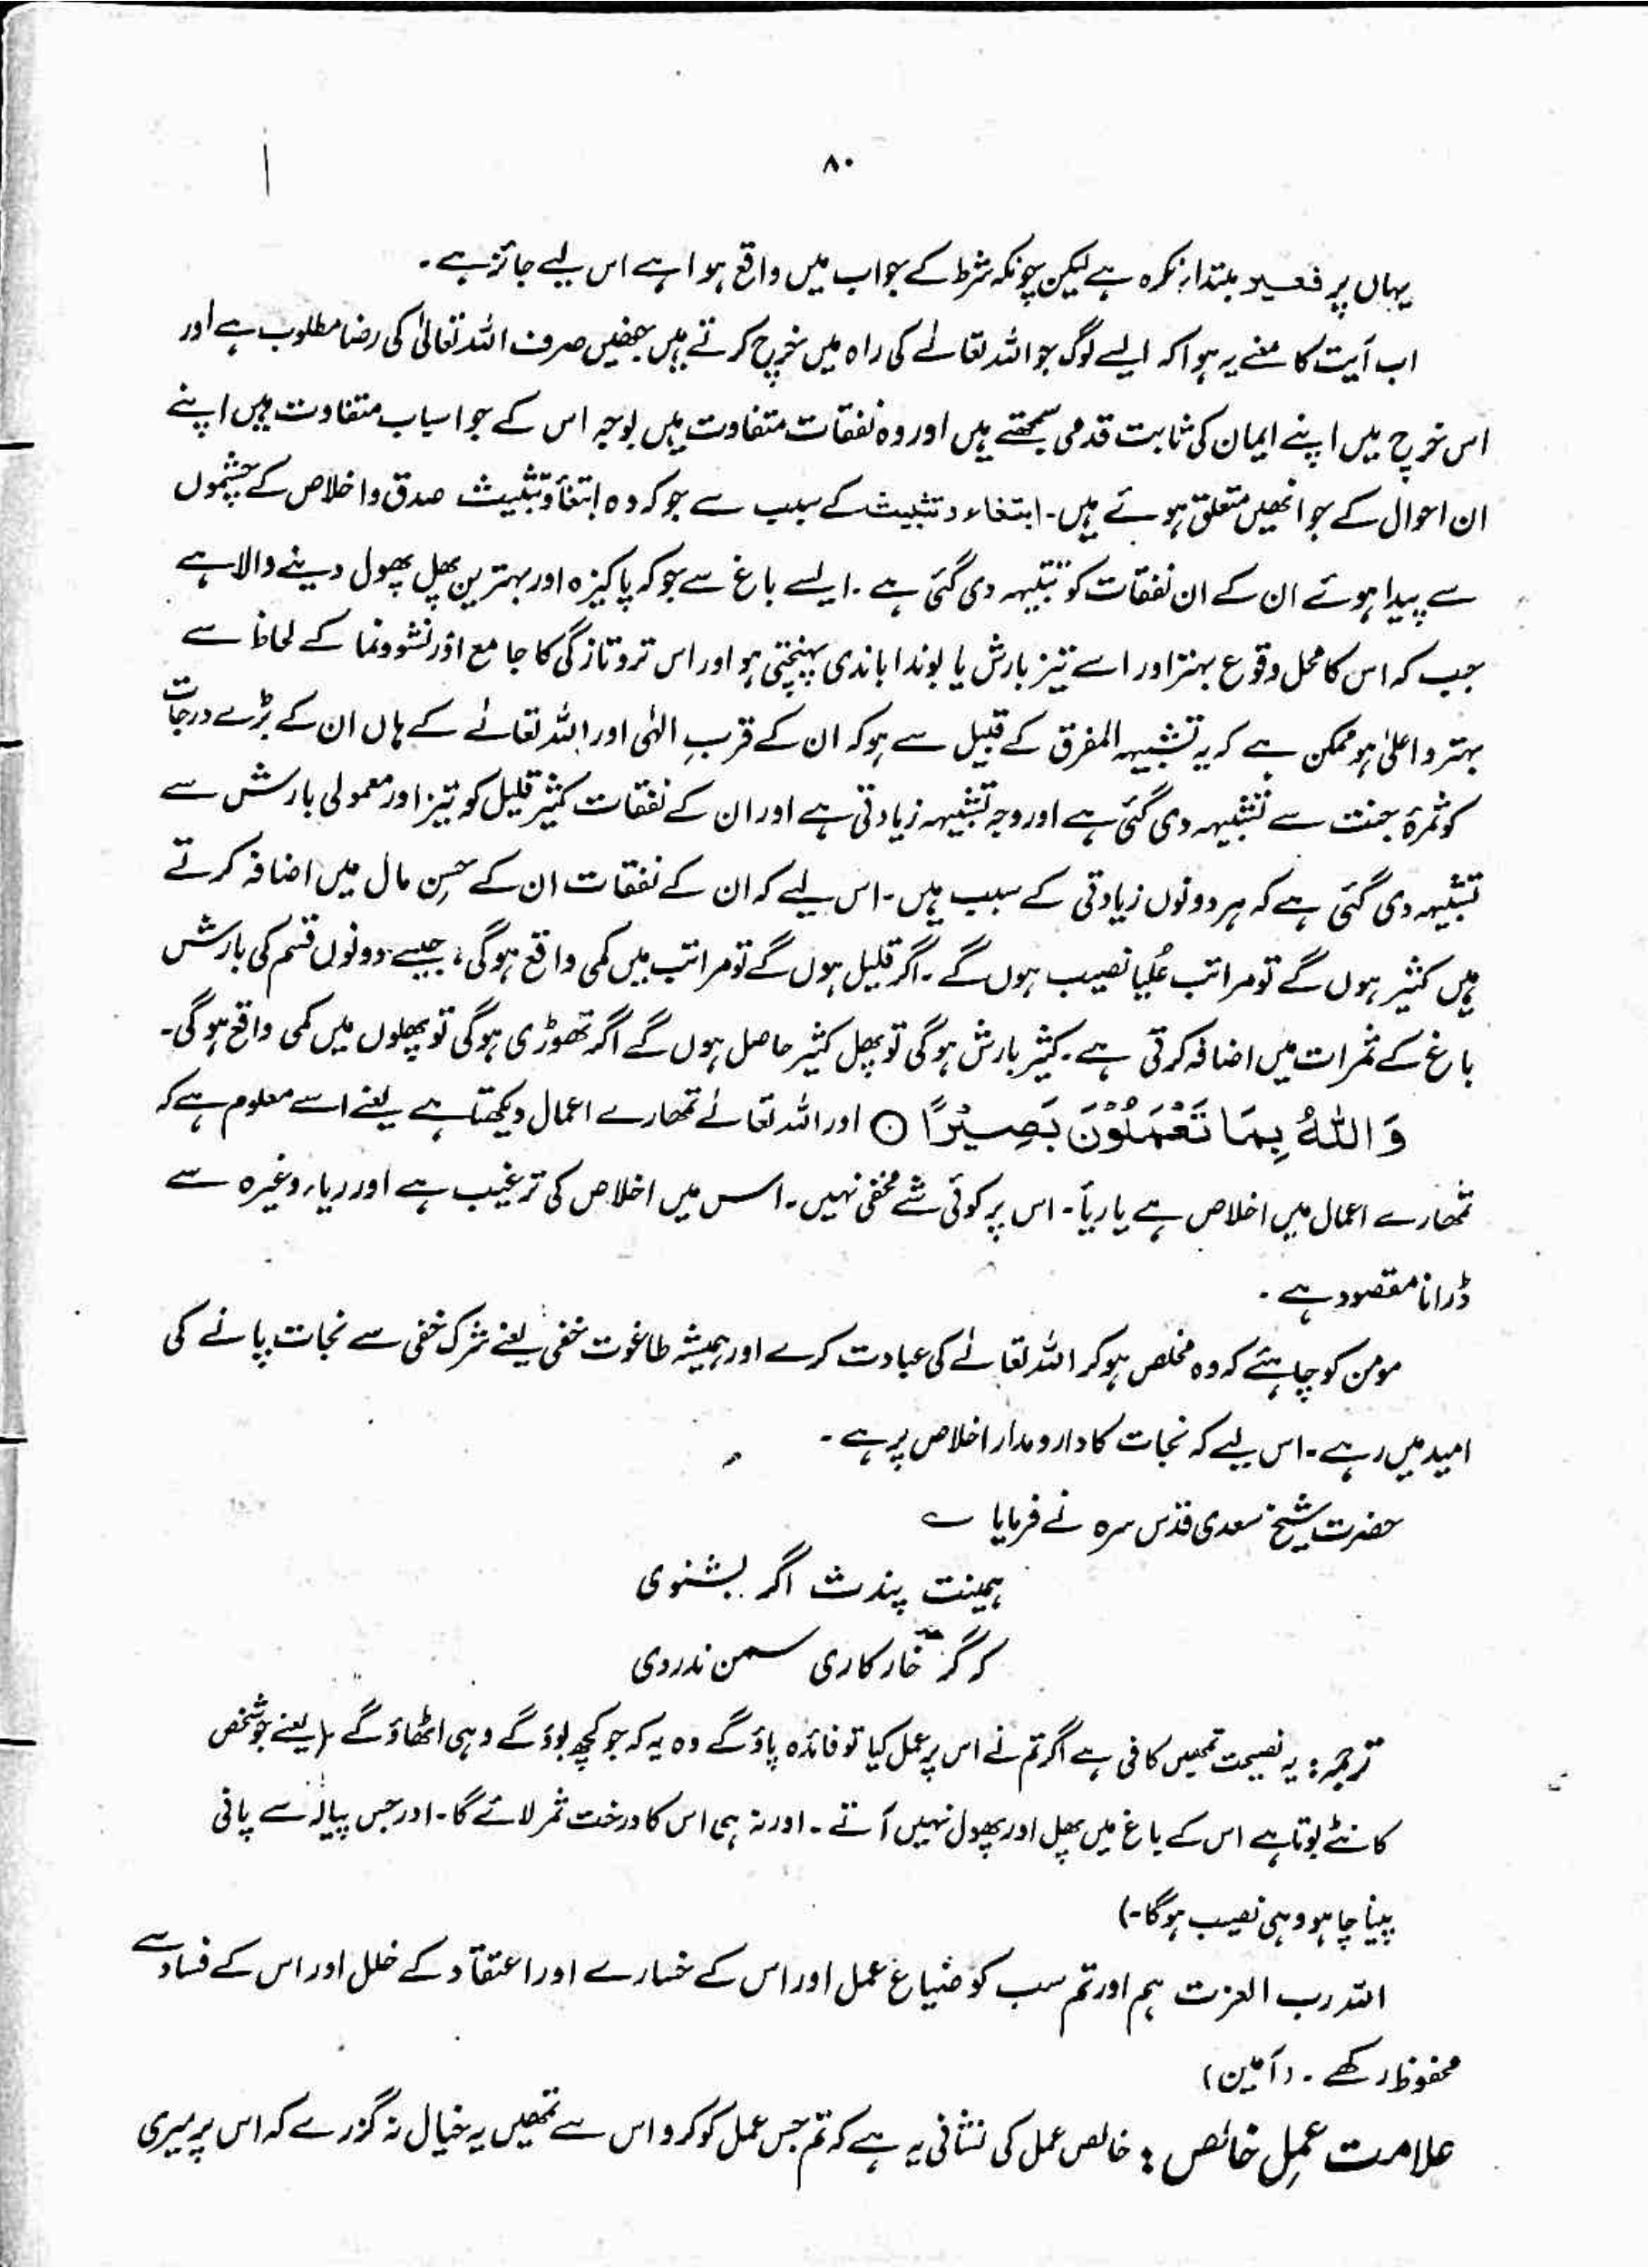 ۸۰
یہاں پر فصیو مبتدا، نکرہ ہے لیکن چونکہ شرط کے جواب میں واقع ہوا ہے اس لیے جائز ہے۔
اب آیت کا معنٰے یہ ہوا کہ ایسے لوگ جو اللہ تعالٰے کی راہ میں خرچ کرتے ہیں جنھیں صرف اللہ تعالیٰ کی رضا مطلوب ہے اور
اس خرچ میں اپنے ایمان کی ثابت قدمی سمجھتے ہیں اور وہ نفقات متفاوت ہیں بوجہ اس کے جو اسباب متفاوت ہیں اپنے
ان احوال کے جو انھیں متعلق ہوئے ہیں۔ ابتغاء و تثبیت کے سبب سے جو کہ وہ ابتغاً و تثبیت صدق و اخلاص کے چشموں
سے پیدا ہوئے ان کے ان نفقات کو تشبیہہ دی گئی ہے۔ ایسے باغ سے جو کہ پاکیزہ اور بہترین پھل پھول دینے والا ہے
جب کہ اس کا محل وقوع بہتر اور اسے تیز بارش یا بوندا باندی پہنچتی ہو اور اس تروتازگی کا جامع اور نشوونما کے لحاظ سے
بہتر و اعلیٰ ہو ممکن ہے کہ یہ تشبیہہ المفرق کے قبیل سے ہو کہ ان کے قربِ الٰہی اور اللہ تعالٰے کے ہاں ان کے بڑے درجات
کو ثمرۂ جنت سے تشبیہہ دی گئی ہے اور وجہ تشبیہہ زیادتی ہے اور ان کے نفقات کثیر قلیل کو تیز اور معمولی بارش سے
تشبیہہ دی گئی ہے کہ ہر دونوں زیادتی کے سبب ہیں۔ اس لیے کہ ان کے نفقات ان کے حسِن مال میں اضافہ کرتے
ہیں کثیر ہوں گے تو مراتب عُلیا نصیب ہوں گے۔ اگر قلیل ہوں گے تو مراتب میں کمی واقع ہوگی، جیسے دونوں قسم کی بارش
باغ کے ثمرات میں اضافہ کرتی ہے۔ کثیر بارش ہوگی تو پھل کثیر حاصل ہوں گے اگر تھوڑی ہوگی تو پھلوں میں کمی واقع ہوگی۔
وَاللّٰہُ بِمَا تَعْمَلُوْنَ بَصِیْرًا ○ اور اللہ تعالٰے تمھارے اعمال دیکھتا ہے یعنے اسے معلوم ہے کہ
تمھارے اعمال میں اخلاص ہے یا ریأ۔ اس پر کوئی شے مخفی نہیں۔ اس میں اخلاص کی ترغیب ہے اور ریاء وغیرہ سے
ڈرانا مقصود ہے۔
مومن کو چاہئے کہ وہ مخلص ہو کر اللہ تعالٰے کی عبادت کرے اور ہمیشہ طاغوت خفی یعنے شرک خفی سے نجات پانے کی
امید میں رہے۔ اس لیے کہ نجات کا دارومدار اخلاص پر ہے۔
حضرت شیخ سعدی قدس سرہ نے فرمایا ؎
ہمینت پندث اگر بشنوی
کہ گر خار کاری سمن ندروی
ترجمہ: یہ نصیحت تمھیں کافی ہے اگر تم نے اس پر عمل کیا تو فائدہ پاؤ گے وہ یہ کہ جو کچھ بوؤ گے وہی اٹھاؤ گے (یعنے جو شخص
کانٹے بوتا ہے اس کے باغ میں پھل اور پھول نہیں آتے۔ اور نہ ہی اس کا درخت ثمر لائے گا۔ اور جس پیالہ سے پانی
پینا چاہو وہی نصیب ہوگا۔)
اللہ رب العزت ہم اور تم سب کو ضیاع عمل اور اس کے خسارے اور اعتقاد کے خلل اور اس کے فساد سے
محفوظ رکھے۔ (آمین)
علامت عمِل خالص: خالص عمل کی نشانی یہ ہے کہ تم جس عمل کو کرو اس سے تمھیں یہ خیال نہ گزرے کہ اس پر میری